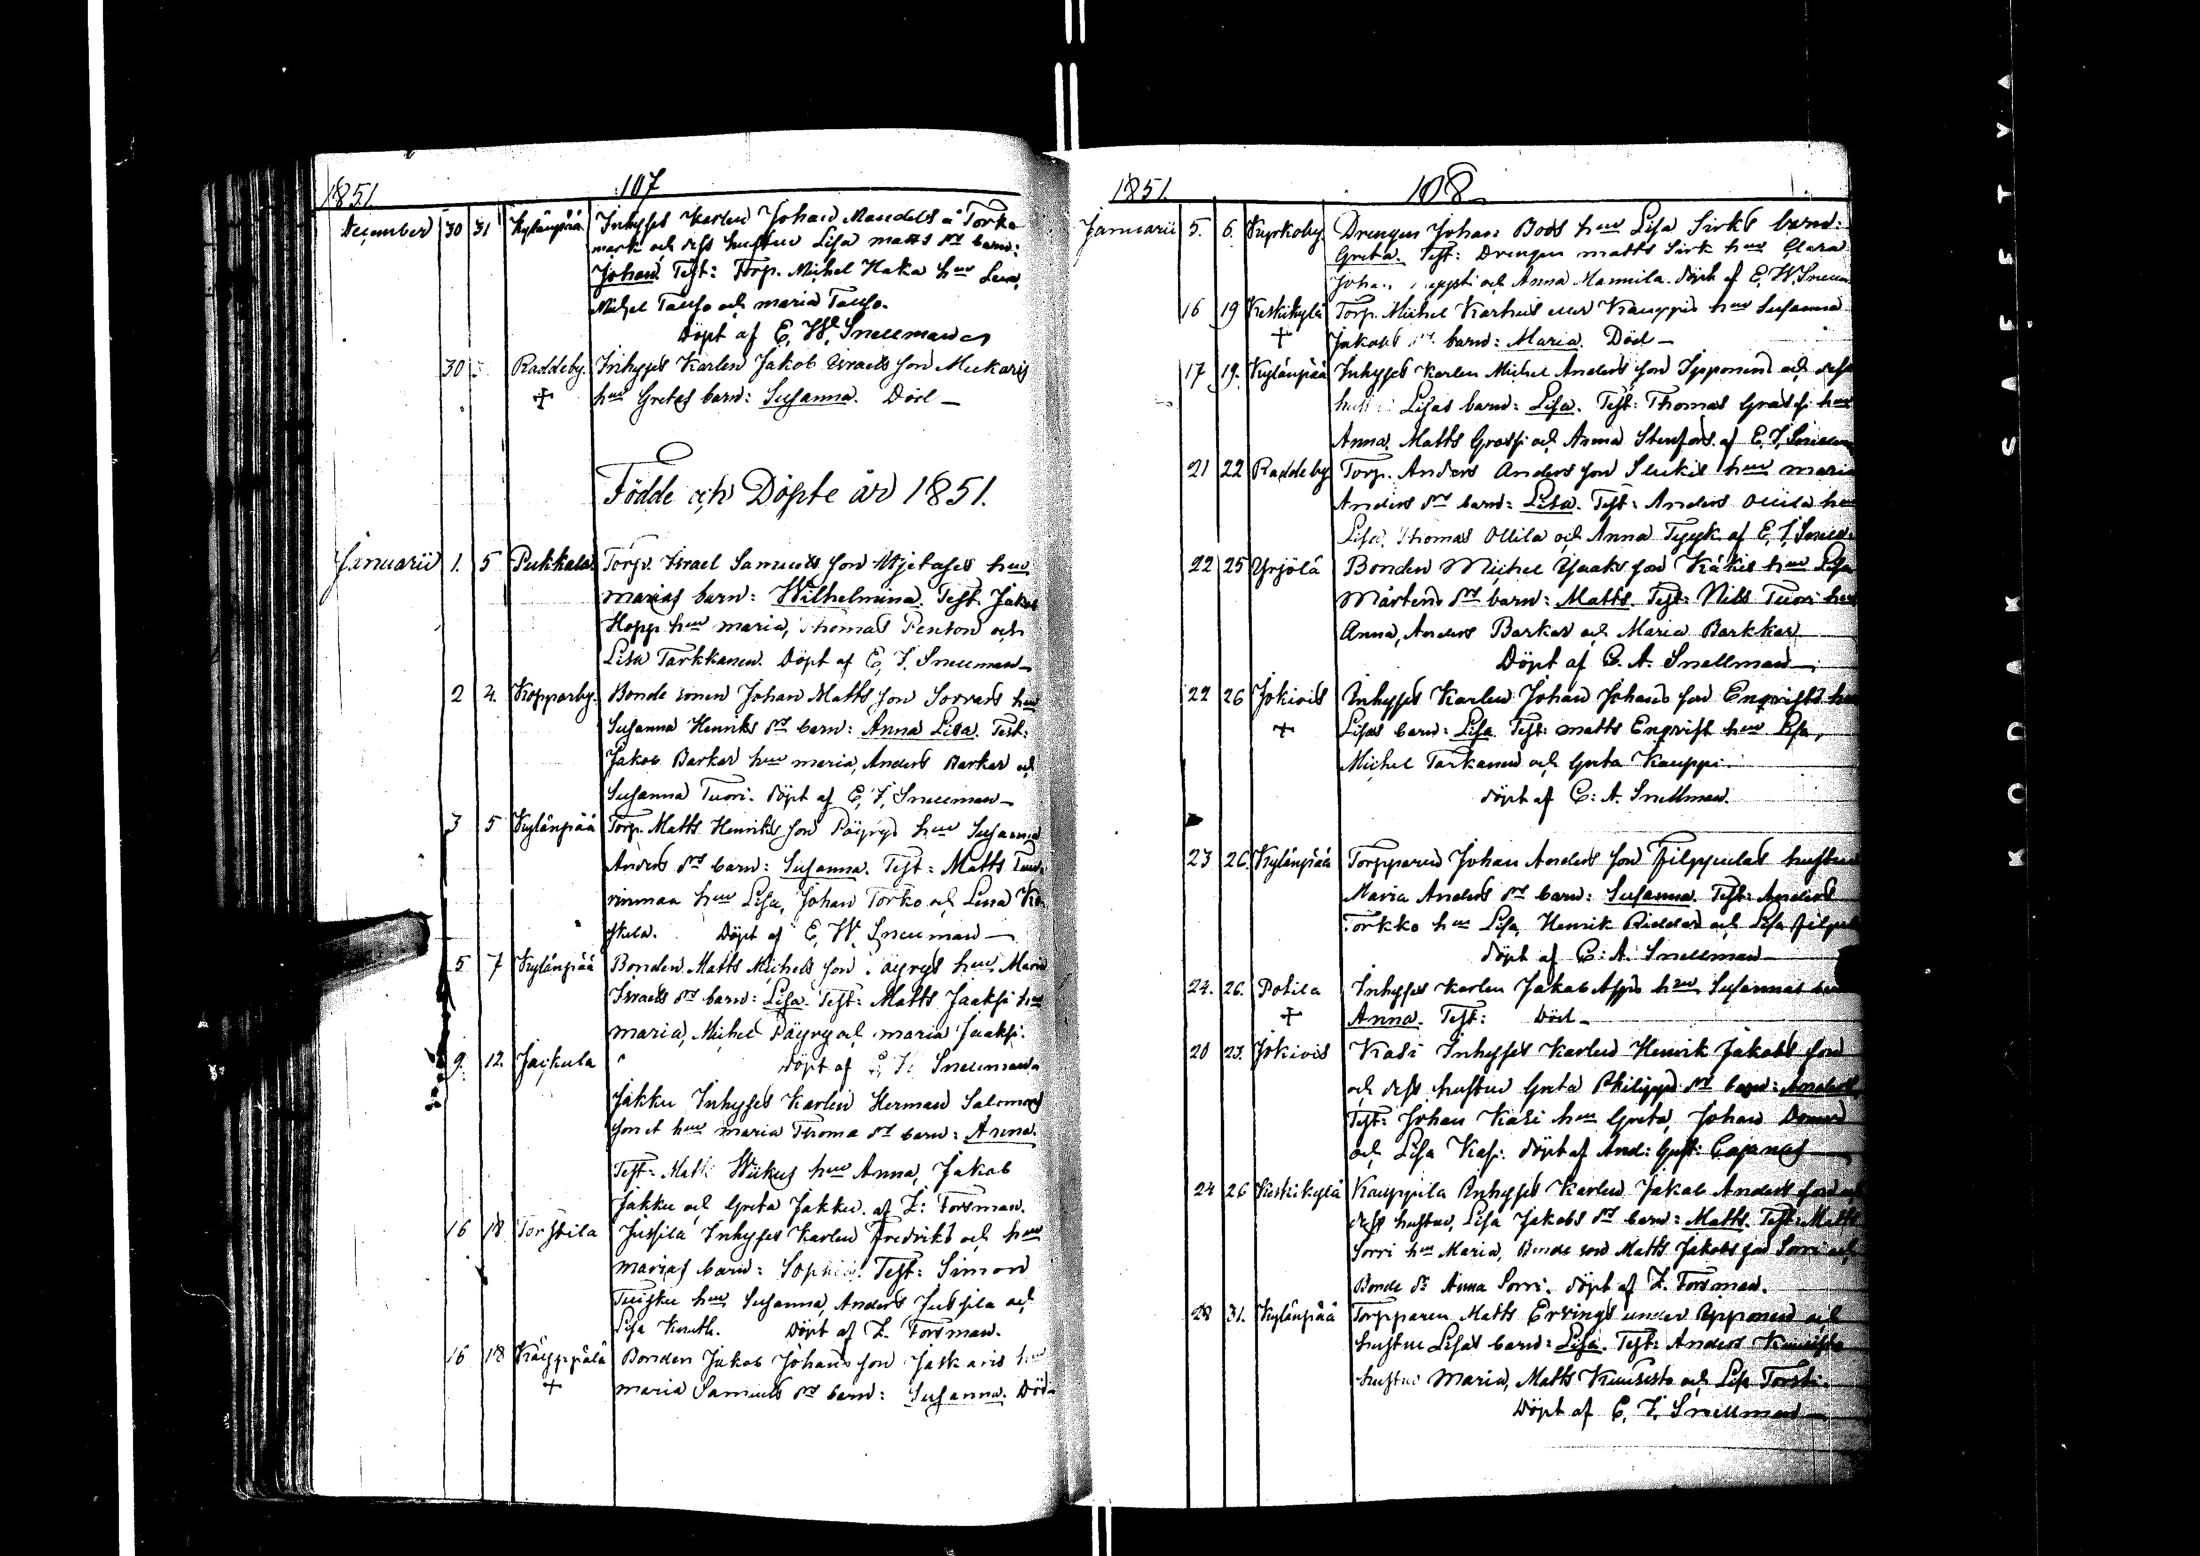 1851. 107
December 30 31 Kylänpää Inhyses Karlen Johan Mandels å Torko
mark och dess hustru Lisa Matts dr barn:
Johan. Test: Torp. Michel Haka hru Lena,
Michel Tauso och Maria Tauso.
Döpt af E. W. Snellman
30 Raddeby. Inhyses Karlen Jakob Israels son Muckaris
+ hru Gretas barn: Susanna. Död —
Födde och Döpte år 1851.
Januarii 1. 5 Pukkala Torp. Israel Samuels son hru
Marias barn: Wilhelmina. Test. Jakob
Hopp hru Maria, Thomas Penton och
Lisa Tarkkanen. Döpt af E. I. Snellman —
2 4. Kopparby. Bonde sonen Johan Matts son Sorvars hru
Susanna Henriks dr barn: Anna Lisa. Test:
Jakob Barkar hru Maria, Anders Barkar och
Susanna Tuori. Döpt af E. I. Snellman —
3 5 Kylänpää Torp. Matts Henriks son Päyrys hru Susanna
Anders dr barn: Susanna. Test: Matts
hru Lisa, Johan Torko och Lena Ko-
skela. Döpt af E. W. Snellman —
5 7 Kylänpää Bonden Matts Michels son Päyrys hru Maria
Israels dr barn: Lisa. Test: Matts Jaaksi hru
Maria, Michel Päyry och Maria Jaaksi.
9. 12. Jäckula Döpt af Snellman
Jakku Inhyses Karlen Herman Salomons
son et hru Maria Thoma dr barn: Anna.
Test: Matts Wiikus hru Anna, Jakob
Jakku och Greta Jakku. af Z: Forsman.
16 18 Torstila Jussila Inhyses Karlen Fredriks och hru
Marias barn: Sophia. Test: Simon
Tuisku hru Susanna, Anders Jussila och
Lisa Knuth. Döpt af Z. Forsman.
16 18 Käyppälä Bonden Jakob Johans son Jaskaris hru
+ Maria Samuels dr barn: Susanna. Död
1851. 108
Januarii 5. 6. Kyrkoby. Drengen Johan Boos hru Lisa Sirks barn:
Greta. Test: Drengen Matts Sirk hru Clara
och Anna Mannila. Döpt af E. W. Snellm
16 19 Keskikylä Torp. Michel Karhus eller Kauppis hru Susanna
+ Jakobs dr barn: Maria. Död —
17 19. Kylänpää Inhyses Karlen Michel Anders son Ipponens och dess
hustru Lisas barn: Lisa. Test: Thomas Grassi hru
Anna, Matts Grassi och Anna Stenfors. af E. I. Snellm
21 22 Raddeby Torp. Anders Anders son hru Maria
Anders dr barn: Lisa. Test: Anders Ollila hru
Lisa, Thomas Ollila och Anna af E. I. Snellm
22 25 Yrjölä Bonden Michel Jaaks son Käkis hru Lisa
Mårtens dr barn: Matts. Test: Nils Tuori hru
Anna, Anders Barkar och Maria Barkkar
Döpt af C. A. Snellman —
22 26 Jokivis Inhyses Karlen Johan Johans son Enqvists hru
+ Lisas barn: Lisa Test: Matts Enqvist hru Lisa,
Michel Tarkanen och Greta Kauppi.
Döpt af C: A. Snellman.
23 26. Kylänpää Torpparen Johan Anders son Filppulas hustru
Maria Anders dr barn: Susanna. Test: Anders
Torkko hru Lisa, Henrik Riddar och Lisa
Döpt af C: A. Snellman —
24. 26. Potila Inhyses Karlen Jakob hru Susannas barn
+ Anna. Test: Död —
20 23. Jokivis Kasi Inhyses Karlen Henrik Jakobs son
och dess hustru Greta Philipps dr barn: Anders
Test: Johan Kasi hru Greta, Johan
och Lisa Kasi. Döpt af And: Gust: Cajanus
24 26 Keskikylä Kauppila Inhyses Karlen Jakob Anders son och
dess hustru, Lisa Jakobs dr barn: Matts. Test: Matts
Sorri hru Maria, Bonde son Matts Jakobs son Sorri och
Bonde dr Anna Sorri. Döpt af Z. Forsman.
28 31. Kylänpää Torpparen Matts Ervings under Ipponen och
hustru Lisas barn: Lisa. Test: Anders Kuusisto
hustru Maria, Matts Kuusisto och Lisa
Döpt af E. I. Snellman —
KODAK SAFETY A